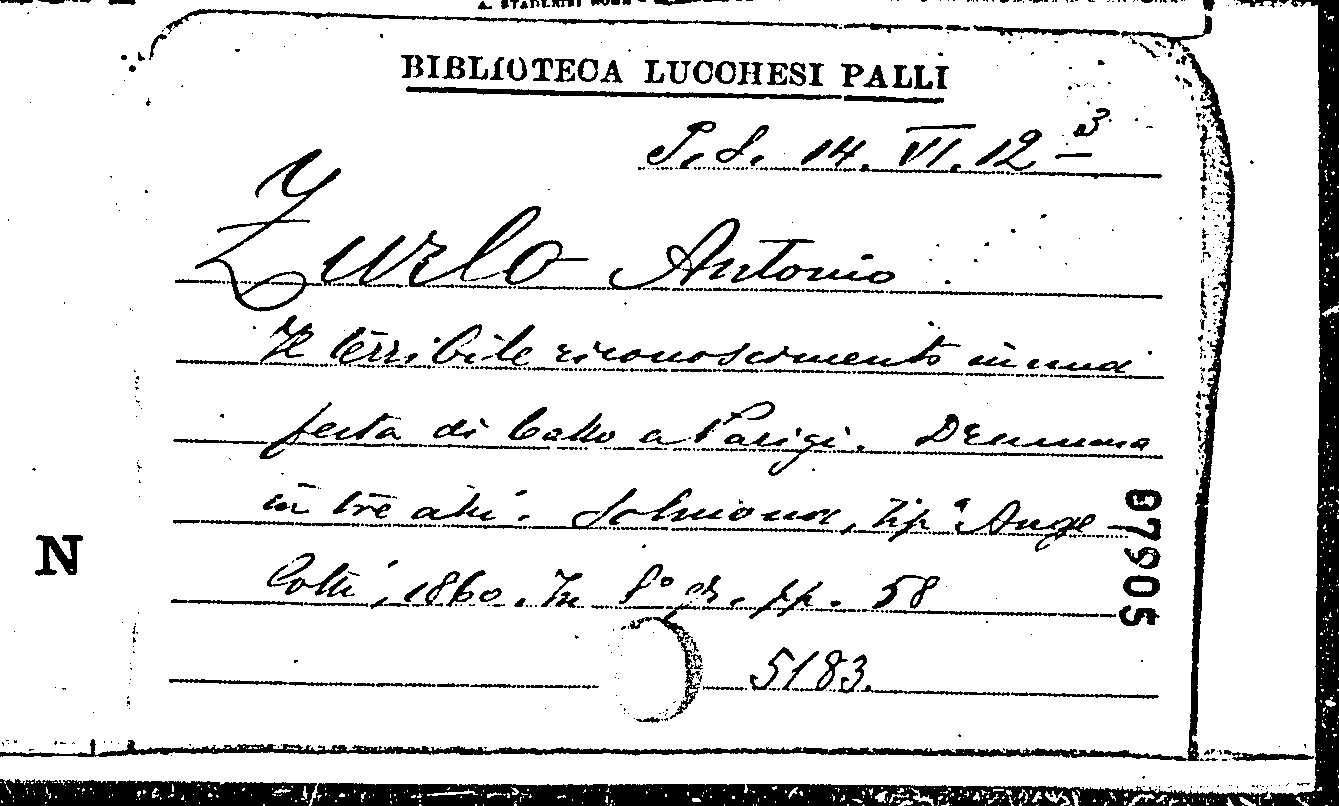 A. STADERINI ROMA
BIBLIOTECA LUCCHESI PALLI
P.S. 14. VI. 12 3
Zurlo Antonio
Il terribile riconoscimento in una
festa di ballo a Parigi. Dramma
in tre atti. Solmona, Tipª Ange-
lotti, 1860. In 8º gr. pp. 58
5183.
07905
N